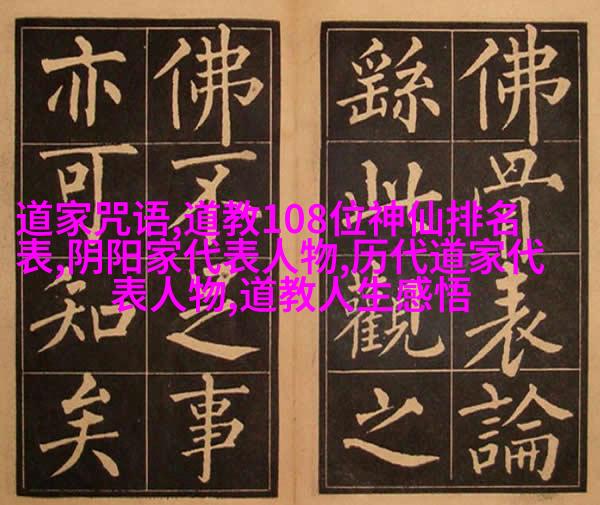 佛骨表論
繇此觀之
佛不足事
亦可知矣
道家咒语,道教108位神仙排名
表,阴阳家代表人物,历代道家代
表人物,道教人生感悟